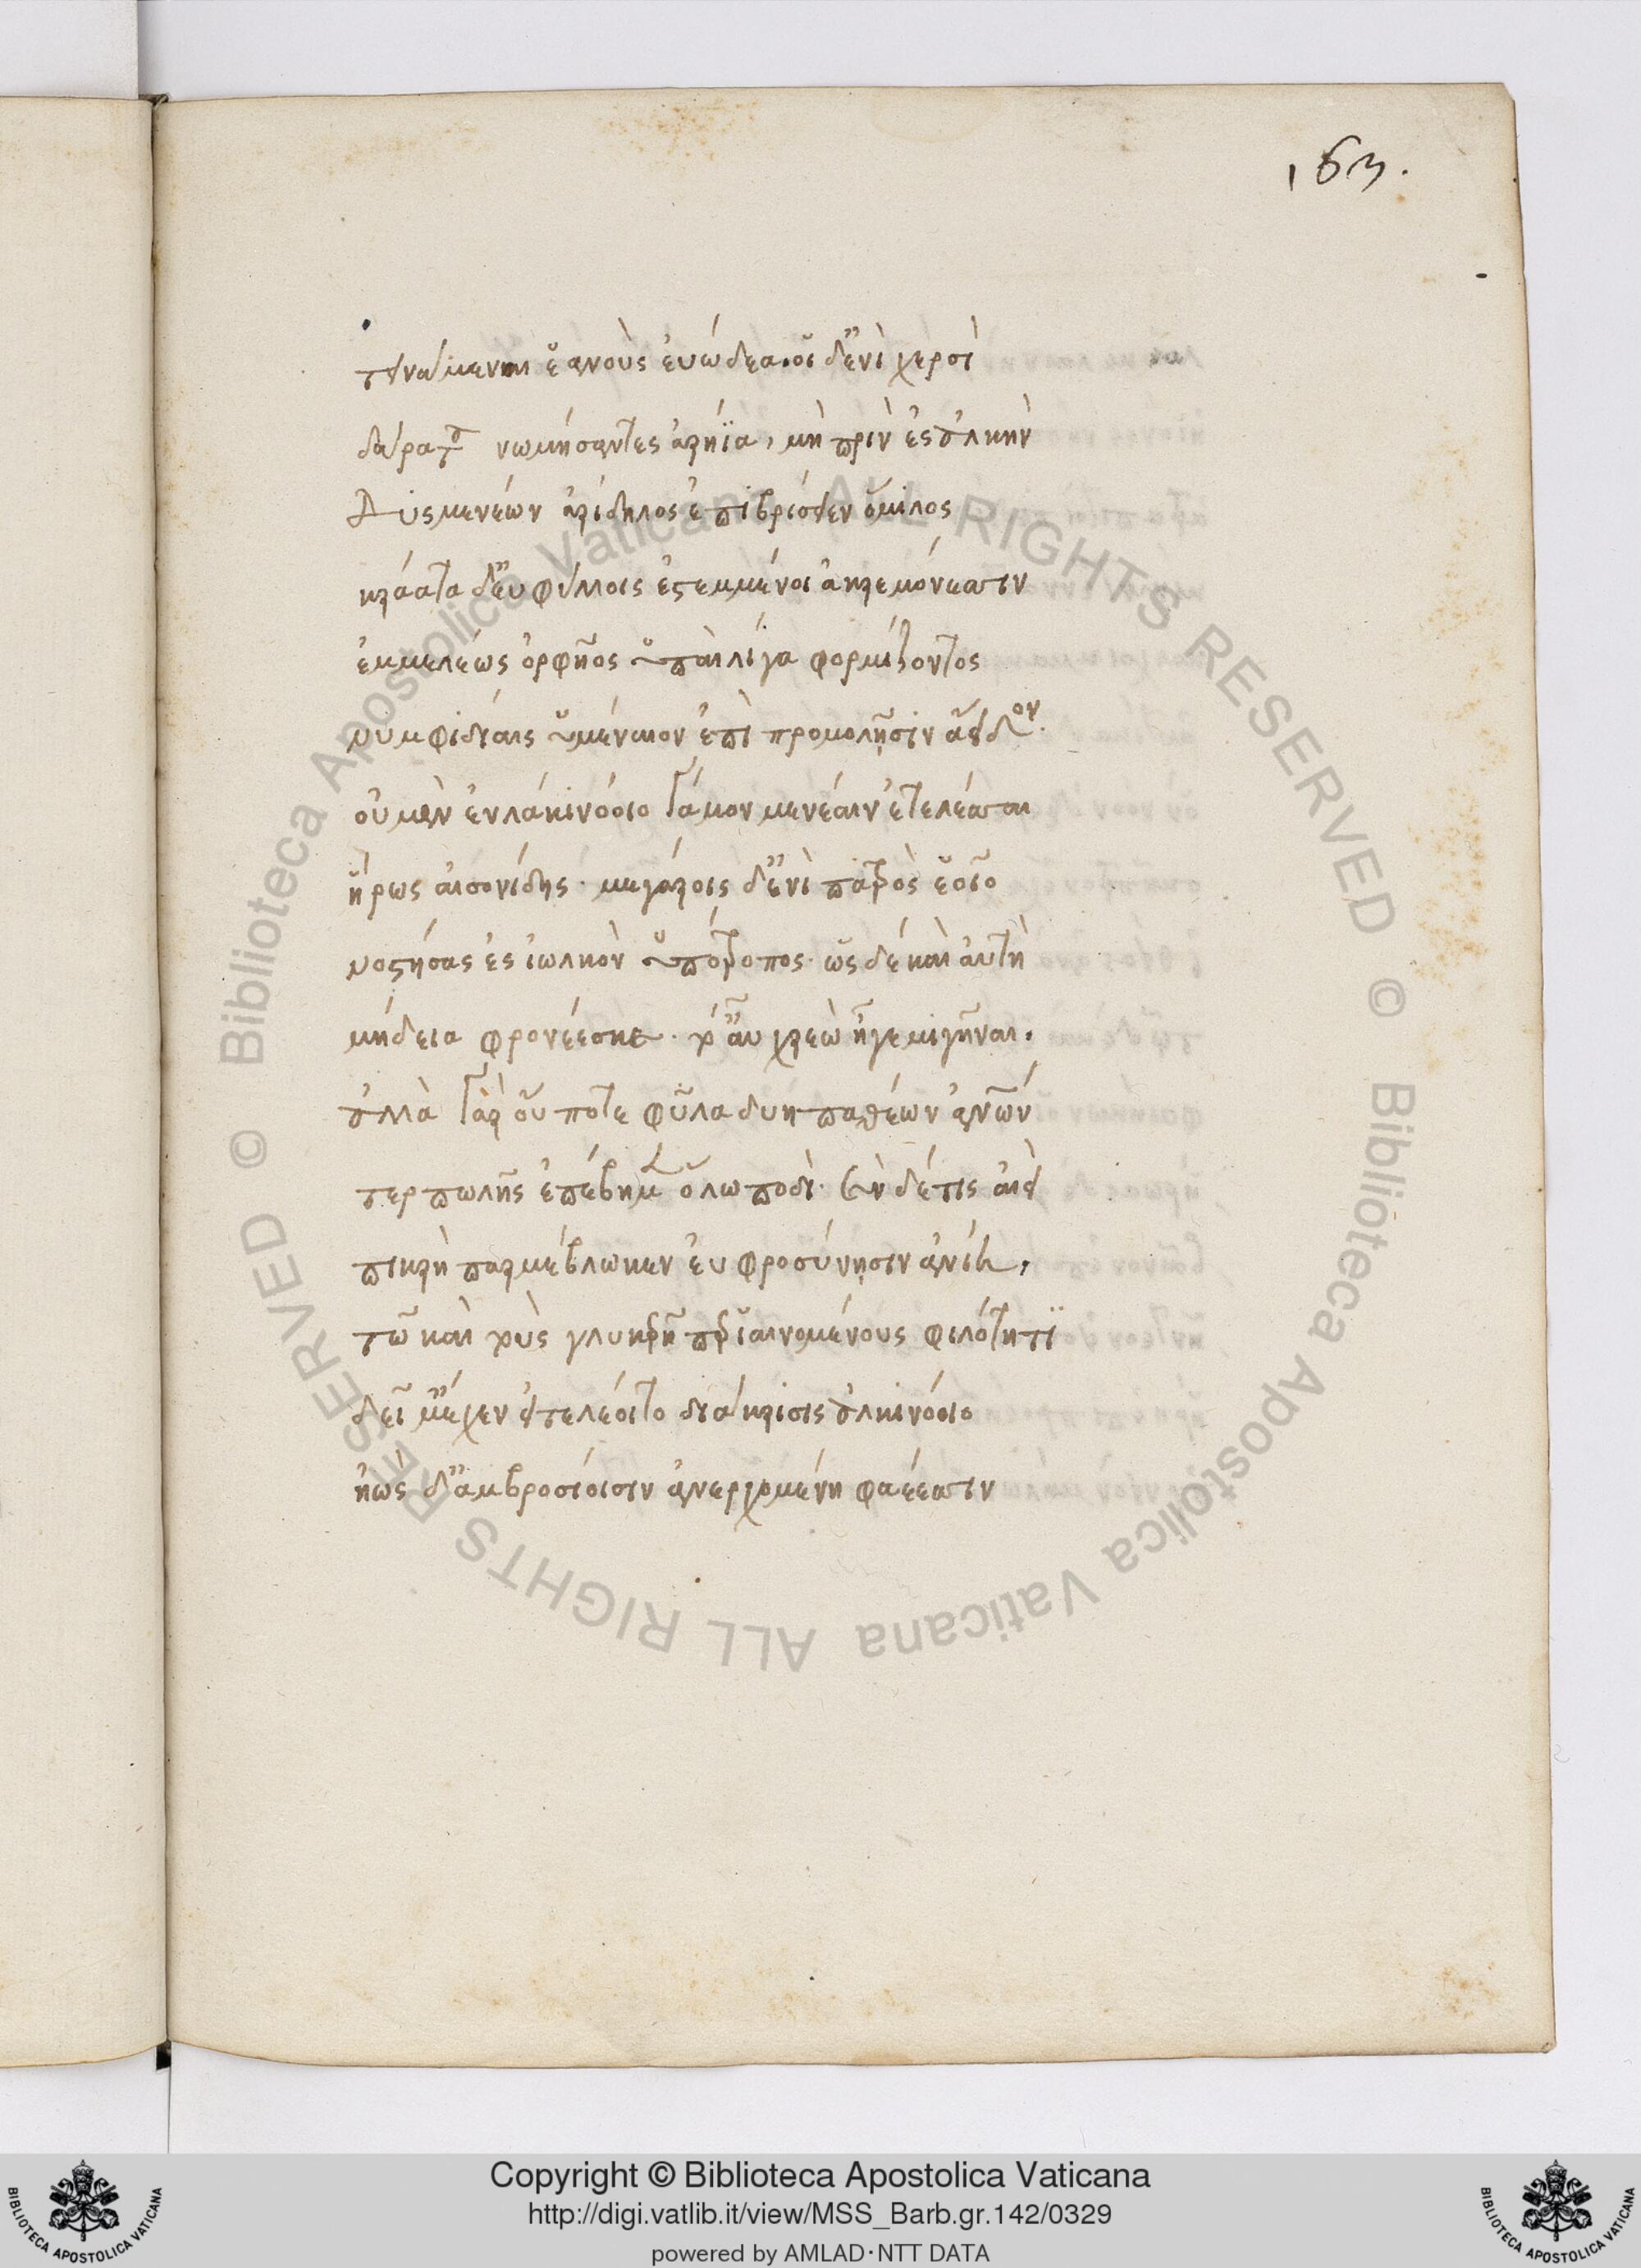 163.
τεινάμεναι ἑανοὺς ἐυώδεας. οἱ δ' ἐνὶ χερσὶ
δούρατα νωμήσαντες ἀρήϊα, μὴ πρὶν ἐς ἀλκὴν
Δυσμενέων ἀρίδηλος ἐπιβρίσειεν ὅμιλος
κράατα δ' εὐφύλλοις ἐστεμμένοι ἀκρεμόνεσσιν
ἐμμελέως ὀρφῆος ὑπαὶ λίγα φορμίζοντος
νυμφιδίαις ὑμέναιον ἐπὶ προμολῇσιν ἄειδον.
οὐ μὲν ἐν λακινόοιο γάμον μενέαιν' ἐτελέσσαι
ἥρως αἰσονίδης. μεγάροις δ' ἐνὶ πατρὸς ἑοῖο
νοστήσας ἐς ἰωλκὸν ὑπότροπος. ὣς δὲ καὶ αὐτὴ
μήδεια φρονέεσκε. τότ' αὖ χρεὼ ἦγε μιγῆναι.
ἀλλὰ γὰρ οὔποτε φῦλα δυηπαθέων ἀνθρώπων
τερπωλῆς ἐπέβημεν ὅλῳ ποδί. σὺν δέ τις αἰεὶ
πικρὴ παρμέβλωκεν ἐυφροσύνῃσιν ἀνίη,
τῶ καὶ τοὺς γλυκερῇ περ ἰαινομένους φιλότητι
δεῖμ' ἔχεν εἰ τελέοιτο διάκρισις ἀλκινόοιο
ἠὼς δ' ἀμβροσίοισιν ἀνερχομένη φαέεσσιν
© Biblioteca Apostolica Vaticana ALL RIGHTS RESERVED © Biblioteca Apostolica Vaticana ALL RIGHTS RESERVED
Copyright © Biblioteca Apostolica Vaticana
http://digi.vatlib.it/view/MSS_Barb.gr.142/0329
powered by AMLAD·NTT DATA
BIBLIOTECA APOSTOLICA VATICANA
BIBLIOTECA APOSTOLICA VATICANA